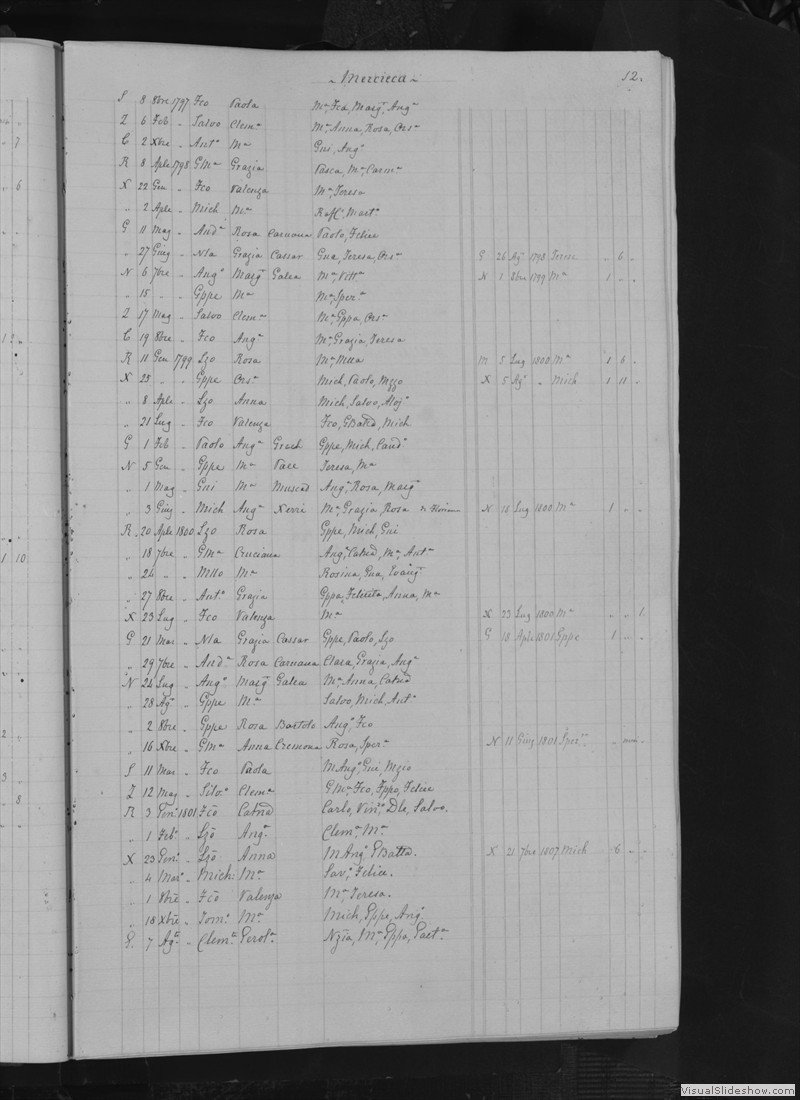 Mercieca 12.
S 8 8bre 1797 Fco Paola Ma, Fca, Margta, Anga
Z 6 Feb " Salvo Clema Ma, Anna, Rosa, Orsa
C 2 Xbre " Anto Ma Gni, Anga
R 8 Aple 1798 GMa Grazia Ma, Carma
X 22 Gen " Fco Valenza Ma, Teresa
" 2 Aple " Mich Ma Raffe, Marta
G 11 Mag " Anda Rosa Caruana Paolo, Felice
" 27 Giug " Nla Grazia Cassar Gna, Teresa, Orsa G 26 Agto 1798 Terese " 6 "
N 6 7bre " Ango Margta Galea Ma, Vitta N 1 8bre 1799 Ma 1 " "
" 15 " " Gppe Ma Ma, Spera
Z 17 Mag " Salvo Clema Ma, Gppa, Orsa
C 19 8bre " Fco Anga Ma, Grazia, Teresa
R 11 Gen 1799 Lzo Rosa Ma, M 5 Lug 1800 Ma 1 6 "
X 25 " " Gppe Orsa Mich, Paolo, Mzzo X 5 Agto " Mich 1 11 "
" 8 Aple " Lzo Anna Mich, Salvo, Aloja
" 21 Lug " Fco Valenza Fco, GBatta, Mich
G 1 Feb " Paolo Anga Grech Gppe, Mich, Canda
N 5 Gen " Gppe Ma Pace Teresa, Ma
" 1 Mag " Gni Ma Muscad Anga, Rosa, Margta
" 3 Giug " Mich Anga Xerri Ma, Grazia Rosa N 14 Lug 1800 Ma 1 " "
R 20 Aple 1800 Lzo Rosa Gppe, Mich, Gni
" 18 7bre " GMa Cruciana Anga, Catna, Ma, Anta
" 24 " " Mllo Ma Rosina, Gna, Evanga
" 27 8bre " Anto Grazia Gppa, Felicita, Anna, Ma
X 23 Lug " Fco Valenza Ma X 23 Lug 1800 Ma " " 1
G 21 Mar " Nla Grazia Cassar Gppe, Paolo, Lzo G 18 Aple 1801 Gppe 1 " "
" 29 7bre " Anda Rosa Caruana Clara, Grazia, Anga
N 24 Lug " Ango Margta Galea Ma, Anna, Catna
" 28 Agto " Gppe Ma Salvo, Mich, Anto
" 2 8bre " Gppe Rosa Bartolo Ango, Fco
" 16 Xbre " GMa Anna Cremona Rosa, Spera N 11 Giug 1801 Spera
S 11 Mar " Fco Paola MAnga, Gni, Mzio
Z 12 Mag " Silvo Clema GMa, Fco, Fppo, Felice
R 3 Geno 1801 Fco Catna Carlo, Vinco, Dle, Salvo.
" 1 Febo " Lzo Anga Clema, Ma
X 23 Geno " Lzo Anna MAnga, GBatta. X 21 7bre 1807 Mich 6 " "
" 4 Marzo " Mich: Ma Savo, Felice.
" 1 8bre " Fco Valenza Ma, Teresa.
" 18 Xbre " Toma Ma Mich, Gppe, Anga
G. 7 Agto " Clemte Gerola Nzia, Ma, Gppa, Gaeta
VisualSlideshow.com